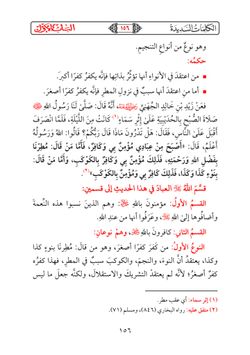 الكلمات السديدة
١٥٦
وهو نوع من أنواع التنجيم.
حكمُه:
• من اعتقدَ في الأنواءِ أنها تؤثِّرُ بذاتِها فإنَّه يكفرُ كفرًا أكبرَ.
• أما من اعتقدَ أنها سببٌ في نزولِ المطرِ فإنَّه يكفرُ كفرًا أصغرَ.
فعنْ زَيْدِ بْنِ خَالِدٍ الجُهَنِيِّ، أنَّهُ قَالَ: صَلَّى لَنَا رَسُولُ اللهِ ﷺ
صَلَاةَ الصُّبْحِ بِالحُدَيْبِيَةِ عَلَى إِثْرِ سَمَاءٍ(١) كَانَتْ مِنَ اللَّيْلَةِ، فَلَمَّا انْصَرَفَ
أَقْبَلَ عَلَى النَّاسِ، فَقَالَ: هَلْ تَدْرُونَ مَاذَا قَالَ رَبُّكُمْ؟ قَالُوا: اللهُ وَرَسُولُهُ
أَعْلَمُ، قَالَ: «أَصْبَحَ مِنْ عِبَادِي مُؤْمِنٌ بِي وَكَافِرٌ، فَأَمَّا مَنْ قَالَ: مُطِرْنَا
بِفَضْلِ اللهِ وَرَحْمَتِهِ، فَذَلِكَ مُؤْمِنٌ بِي وَكَافِرٌ بِالكَوْكَبِ، وَأَمَّا مَنْ قَالَ:
بِنَوْءِ كَذَا وَكَذَا، فَذَلِكَ كَافِرٌ بِي وَمُؤْمِنٌ بِالكَوْكَبِ»(٢).
قسَّمَ اللهُ العبادَ في هذا الحديثِ إلى قسمينِ:
القسمُ الأولُ: مؤمنونَ باللهِ، وهم الذين نسبوا هذه النِّعمةَ
وأضافُوها إلى اللهِ، وعرَفُوا أنها من عندِ اللهِ.
القسمُ الثاني: كافرونَ باللهِ، وهمْ نوعانِ:
النوعُ الأولُ: من كَفَرَ كفرًا أصغرَ، وهو من قالَ: مُطِرنَا بنوءِ كذا
وكذا، يعتقدُ أنَّ النوءَ، والنجمَ، والكوكبَ سببٌ في المطرِ، فهذا كفرُه
كفرٌ أصغرُ؛ لأنَّه لم يعتقدْ التشريكَ والاستقلالَ، ولكنَّه جعلَ ما ليس
(١) إثر سماء: أي عقب مطر.
(٢) متفق عليه: رواه البخاري (٨٤٦)، ومسلم (٧١).
١٥٦